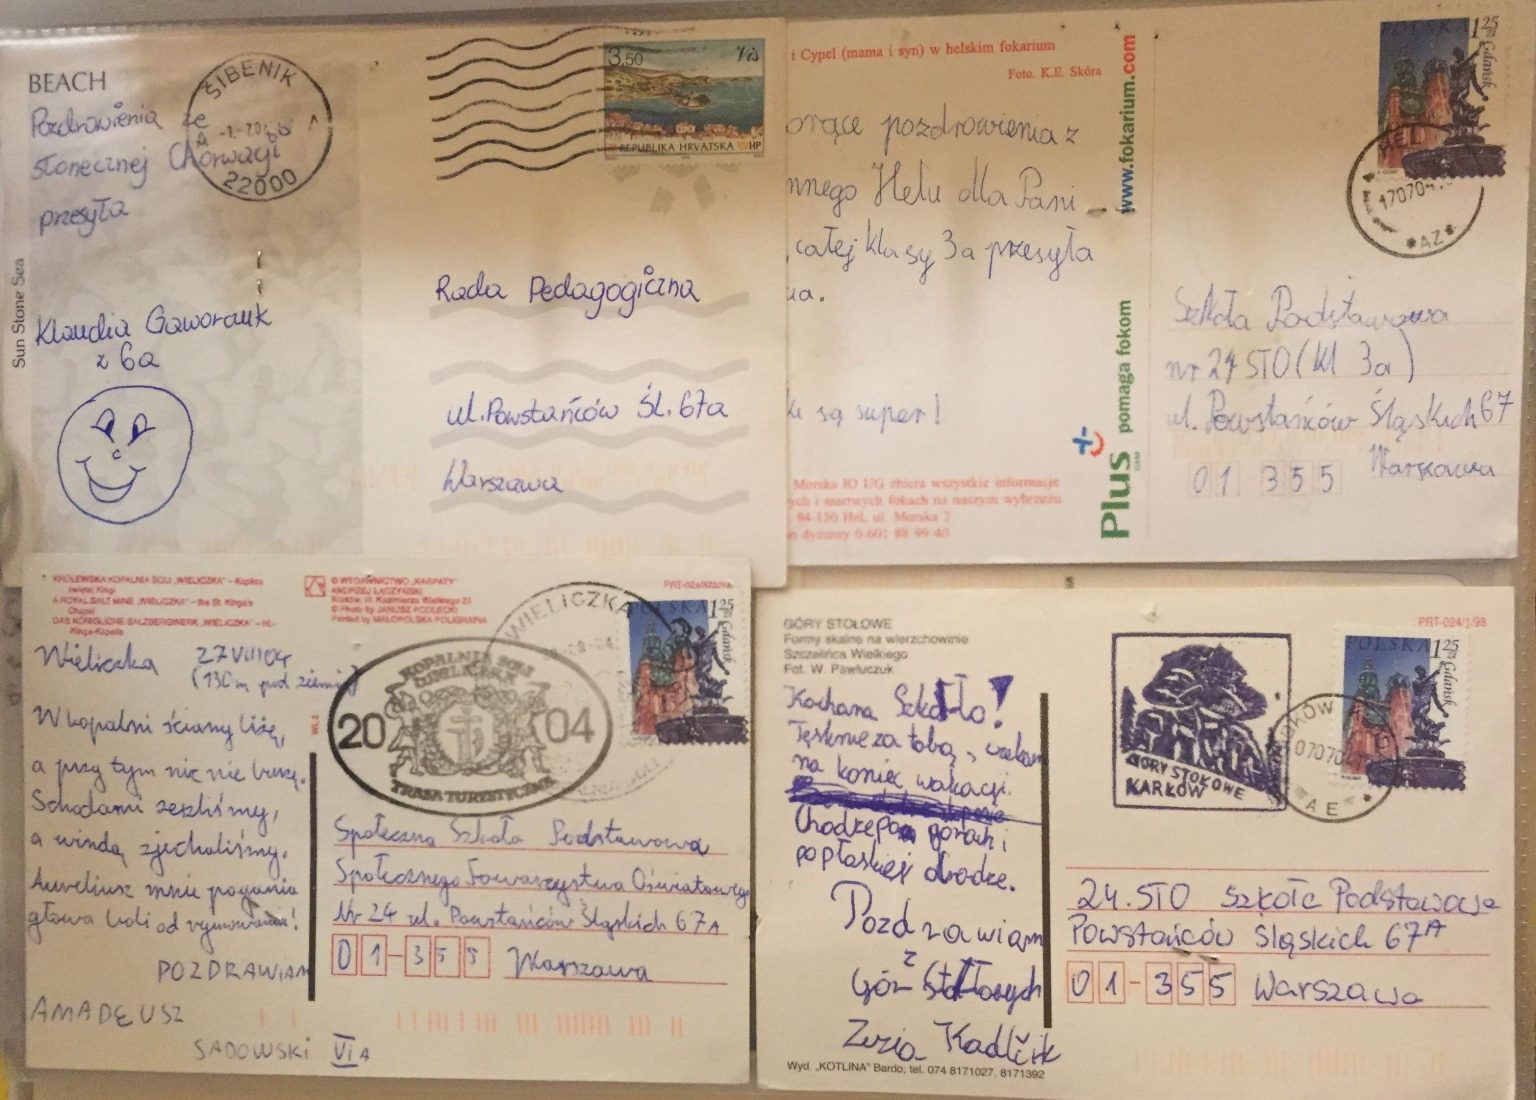 BEACH
Pozdrowienia ze
słonecznej Chorwacji
przesyła
Klaudia Gaworczuk
z 6a
Sun Stone Sea
ŠIBENIK
22000
3,50 Vis
REPUBLIKA HRVATSKA HP
Rada Pedagogiczna
ul. Powstańców Śl. 67a
Warszawa
i Cypel (mama i syn) w helskim fokarium
Foto. K.E. Skóra
orące pozdrowienia z
nnego Helu dla Pani
całej klasy 3a przesyła
są super!
Morska IO UG zbiera wszystkie informacje
ych i martwych fokach na naszym wybrzeżu
84-150 Hel, ul. Morska 2
dyżurny 0-601 88 99 40
www.fokarium.com
Plus pomaga fokom
POLSKA 1,25
Gdańsk
HEL
170704
*AZ*
Szkoła Podstawowa
nr 24 STO (kl 3a)
ul. Powstańców Śląskich 67
01 355 Warszawa
KRÓLEWSKA KOPALNIA SOLI „WIELICZKA” – Kaplica
świętej Kingi
A ROYAL SALT MINE „WIELICZKA” – the St. Kinga's
Chapel
DAS KÖNIGLICHE SALZBERGWERK „WIELICZKA” – Hl.-
Kinga-Kapelle
© WYDAWNICTWO „KARPATY”
ANDRZEJ ŁĄCZYŃSKI
Kraków, ul. Kazimierza Wielkiego 21
© Photo by JANUSZ PODLECKI
Printed by MAŁOPOLSKA POLIGRAFIA
Wieliczka 27 VIII 04r
(130 m pod ziemią)
W kopalni ściany liżę,
a przy tym nic nie
Schodami zeszliśmy,
a windą zjechaliśmy.
Aureliusz mnie pogania
głowa boli od rymowania!
POZDRAWIAM
AMADEUSZ
SADOWSKI VI A
WIELICZKA
KOPALNIA SOLI
WIELICZKA
20 04
TRASA TURYSTYCZNA
POLSKA 1,25
Gdańsk
Społeczna Szkoła Podstawowa
Społecznego Towarzystwa Oświatowego
Nr 24 ul. Powstańców Śląskich 67A
01-355 Warszawa
GÓRY STOŁOWE
Formy skalne na wierzchowinie
Szczelińca Wielkiego
Fot. W. Pawluczuk
PRT-024/1/98
Kochana Szkoło!
Tęsknię za tobą, czekam
na koniec wakacji.
Chodzę po górach i
po płaskiej drodze.
Pozdrawiam
z
Gór Stołowych
Zuzia Kadlčik
Wyd. „KOTLINA” Bardo; tel. 074 8171027, 8171392
GÓRY STOŁOWE
KARŁÓW
070704
AE
POLSKA 1,25
Gdańsk
24. STO Szkoła Podstawowa
Powstańców Śląskich 67A
01-355 Warszawa